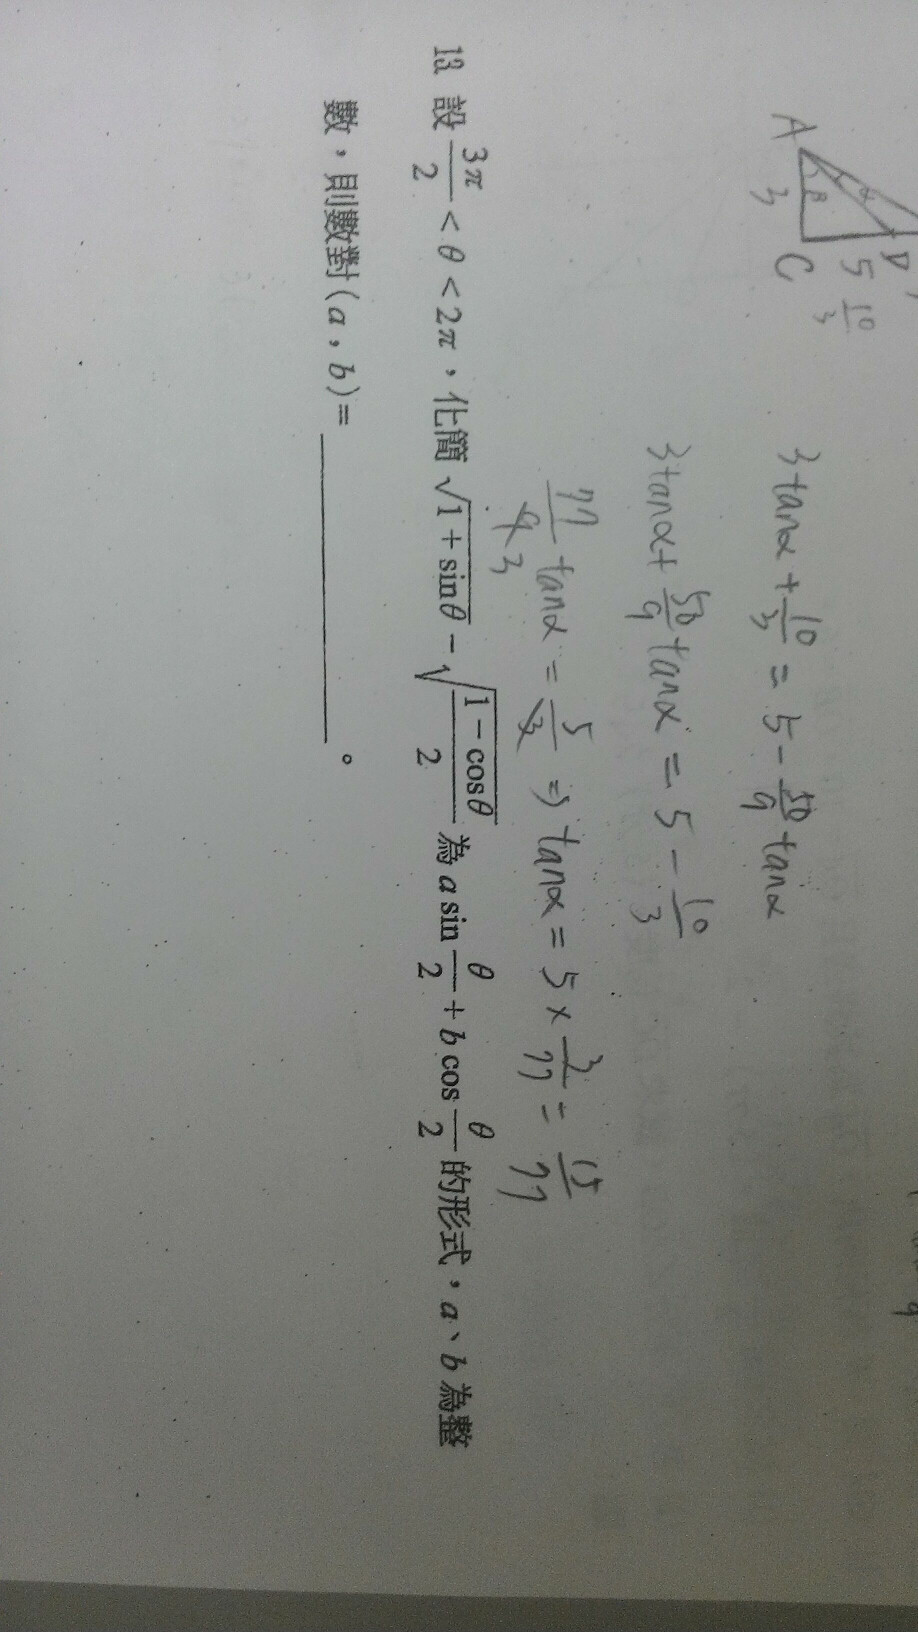 A
3
β
α
D
5
C
10/3
3tanα + 10/3 = 5 - 50/9 tanα
3tanα + 50/9 tanα = 5 - 10/3
77/9 3 tanα = 5/3 ⇒ tanα = 5 × 3/77 = 15/77
13. 設 3π/2 < θ < 2π，化簡 √(1 + sinθ) - √((1 - cosθ)/2) 為 a sin θ/2 + b cos θ/2 的形式，a、b 為整
數，則數對(a，b)= ＿＿＿＿＿＿。